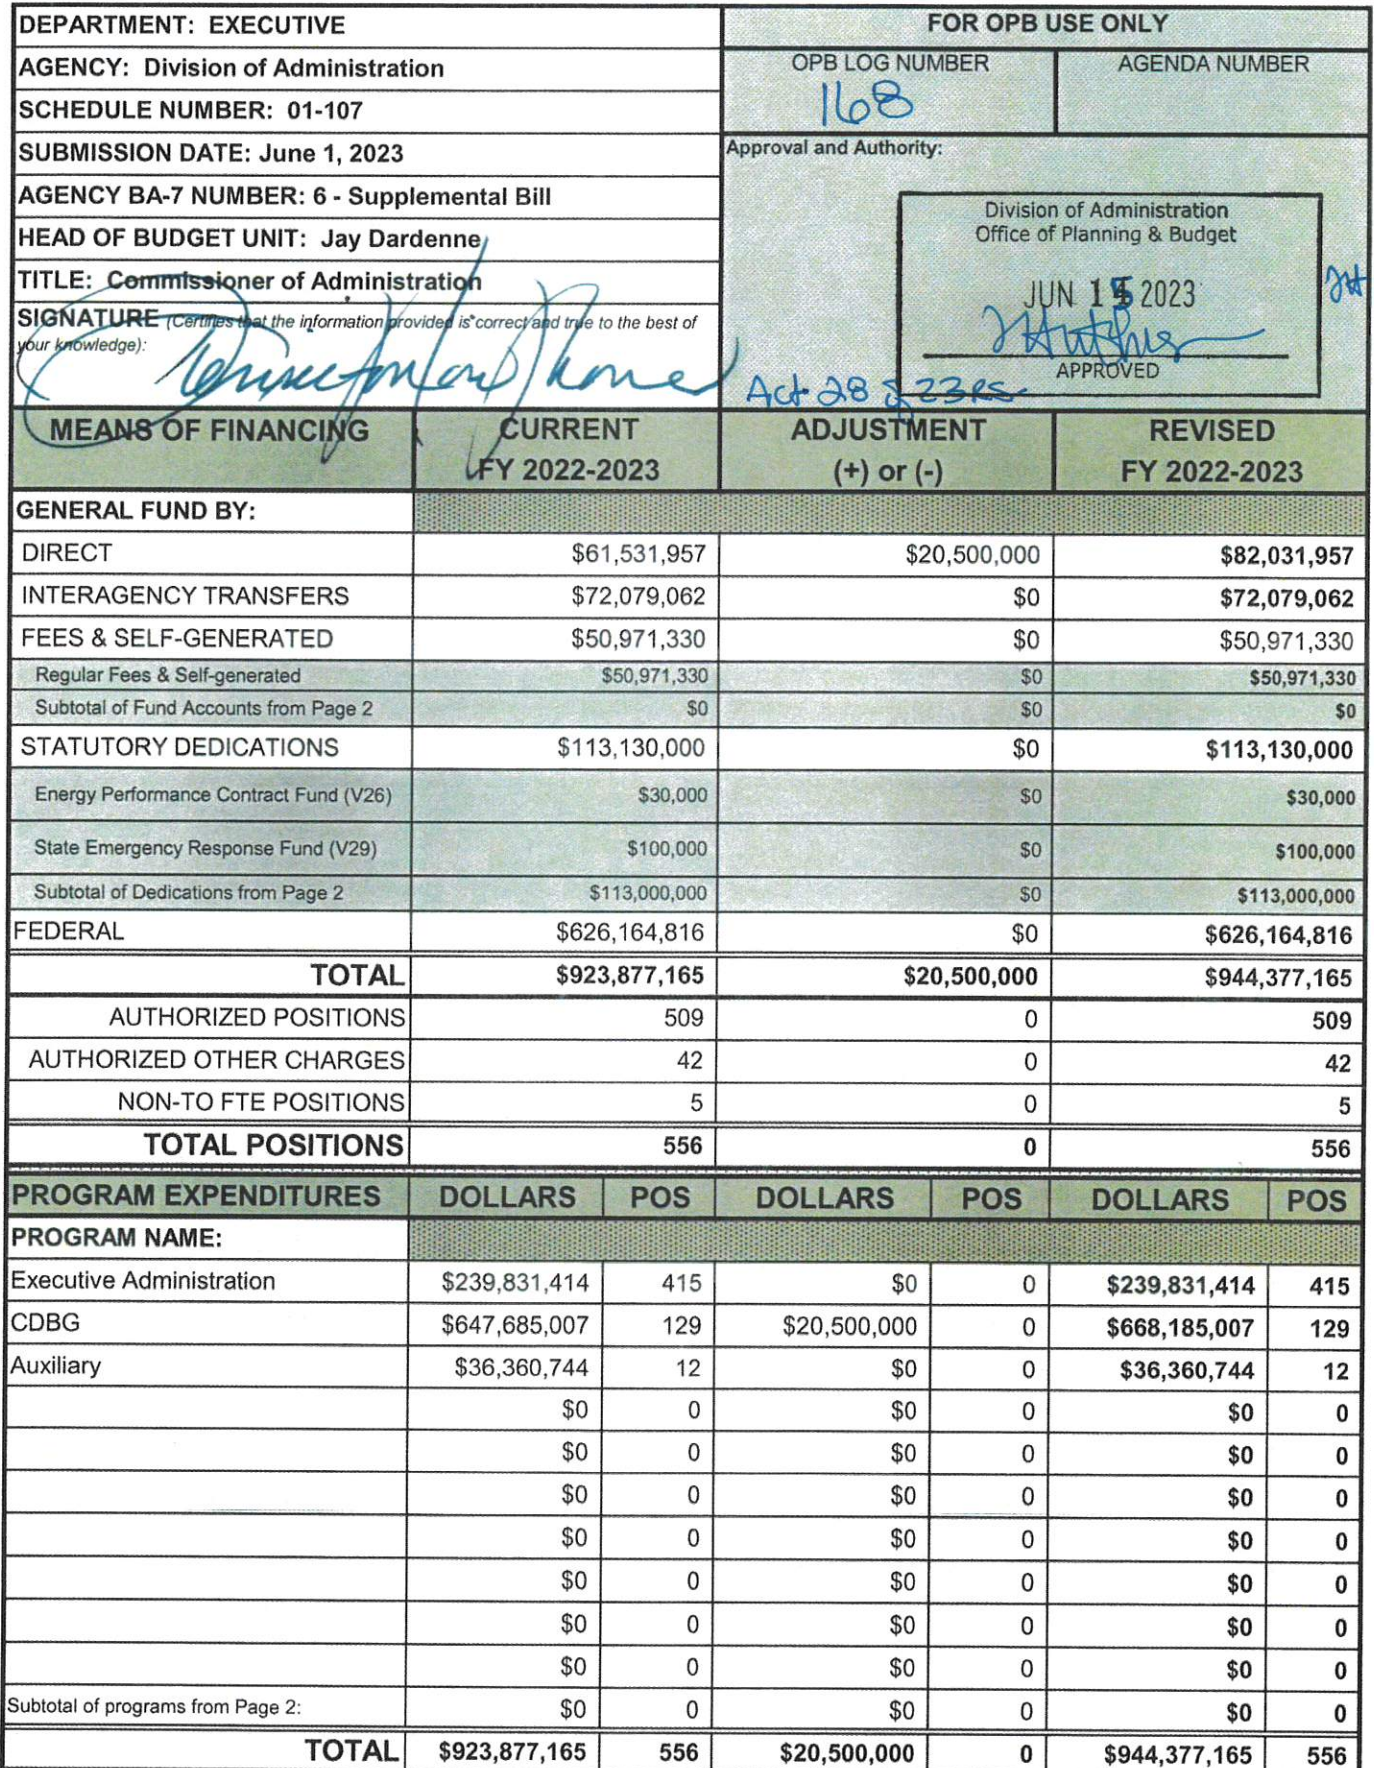 DEPARTMENT: EXECUTIVE
AGENCY: Division of Administration
SCHEDULE NUMBER: 01-107
SUBMISSION DATE: June 1, 2023
AGENCY BA-7 NUMBER: 6 - Supplemental Bill
HEAD OF BUDGET UNIT: Jay Dardenne
TITLE: Commissioner of Administration
SIGNATURE (Certifies that the information provided is correct and true to the best of
your knowledge):
FOR OPB USE ONLY
OPB LOG NUMBER AGENDA NUMBER
168
Approval and Authority:
Division of Administration
Office of Planning & Budget
JUN 15 2023
APPROVED
Act 28 of 23RS
MEANS OF FINANCING CURRENT ADJUSTMENT REVISED
FY 2022-2023 (+) or (-) FY 2022-2023
GENERAL FUND BY:
DIRECT $61,531,957 $20,500,000 $82,031,957
INTERAGENCY TRANSFERS $72,079,062 $0 $72,079,062
FEES & SELF-GENERATED $50,971,330 $0 $50,971,330
Regular Fees & Self-generated $50,971,330 $0 $50,971,330
Subtotal of Fund Accounts from Page 2 $0 $0 $0
STATUTORY DEDICATIONS $113,130,000 $0 $113,130,000
Energy Performance Contract Fund (V26) $30,000 $0 $30,000
State Emergency Response Fund (V29) $100,000 $0 $100,000
Subtotal of Dedications from Page 2 $113,000,000 $0 $113,000,000
FEDERAL $626,164,816 $0 $626,164,816
TOTAL $923,877,165 $20,500,000 $944,377,165
AUTHORIZED POSITIONS 509 0 509
AUTHORIZED OTHER CHARGES 42 0 42
NON-TO FTE POSITIONS 5 0 5
TOTAL POSITIONS 556 0 556
PROGRAM EXPENDITURES DOLLARS POS DOLLARS POS DOLLARS POS
PROGRAM NAME:
Executive Administration $239,831,414 415 $0 0 $239,831,414 415
CDBG $647,685,007 129 $20,500,000 0 $668,185,007 129
Auxiliary $36,360,744 12 $0 0 $36,360,744 12
$0 0 $0 0 $0 0
$0 0 $0 0 $0 0
$0 0 $0 0 $0 0
$0 0 $0 0 $0 0
$0 0 $0 0 $0 0
$0 0 $0 0 $0 0
$0 0 $0 0 $0 0
Subtotal of programs from Page 2: $0 0 $0 0 $0 0
TOTAL $923,877,165 556 $20,500,000 0 $944,377,165 556